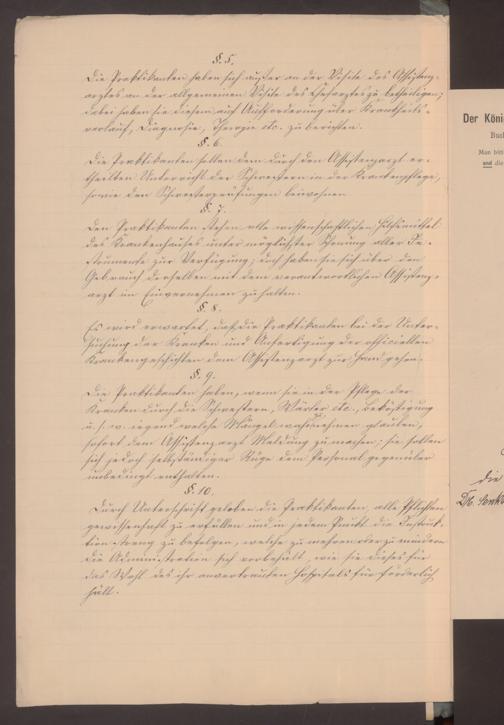 §. 5.
Die Praktikanten haben sich außer an der Visite des Assistenz-
arztes an der allgemeinen Visite des Chefarztes zu betheiligen;
dabei haben sie diesem auf Aufforderung über Krankheits-
verlauf, Diagnose, Therapie etc. zu berichten.
§. 6.
Die Praktikanten sollen dem durch den Assistenzarzt er-
theilten Unterricht der Schwestern in der Krankenpflege,
sowie den Schwesterprüfungen beiwohnen
§. 7.
Den Praktikanten stehen alle wissenschaftlichen Hilfsmittel
des Krankenhauses unter möglichster Schonung aller In-
strumente zur Verfügung; doch haben sie sich über den
Gebrauch derselben mit dem verantwortlichen Assistenz-
arzt im Einvernehmen zu halten.
§. 8.
Es wird erwartet, daß die Praktikanten bei der Unter-
suchung der Kranken und Anfertigung der officiellen
Krankengeschichten dem Assistenzarzt zur Hand gehen.
§. 9.
Die Praktikanten haben, wenn sie in der Pflege der
Kranken durch die Schwestern, Wärter etc., Beköstigung
u. s. w. irgend welche Mängel wahrnehmen glauben,
sofort dem Assistenzarzt Meldung zu machen; sie sollen
sich jedoch selbständiger Rüge dem Personal gegenüber
unbedingt enthalten.
§. 10.
Durch Unterschrift geloben die Praktikanten, alle Pflichten
gewissenhaft zu erfüllen und in jedem Punkt die Instruk-
tion streng zu befolgen, welche zu mehren oder zu mindern
die Administration sich vorbehält, wie sie dieses für
das Wohl des ihr anvertrauten Hospitals für förderlich
hält.
Der Köni
Buc
Man bitt
und die
die